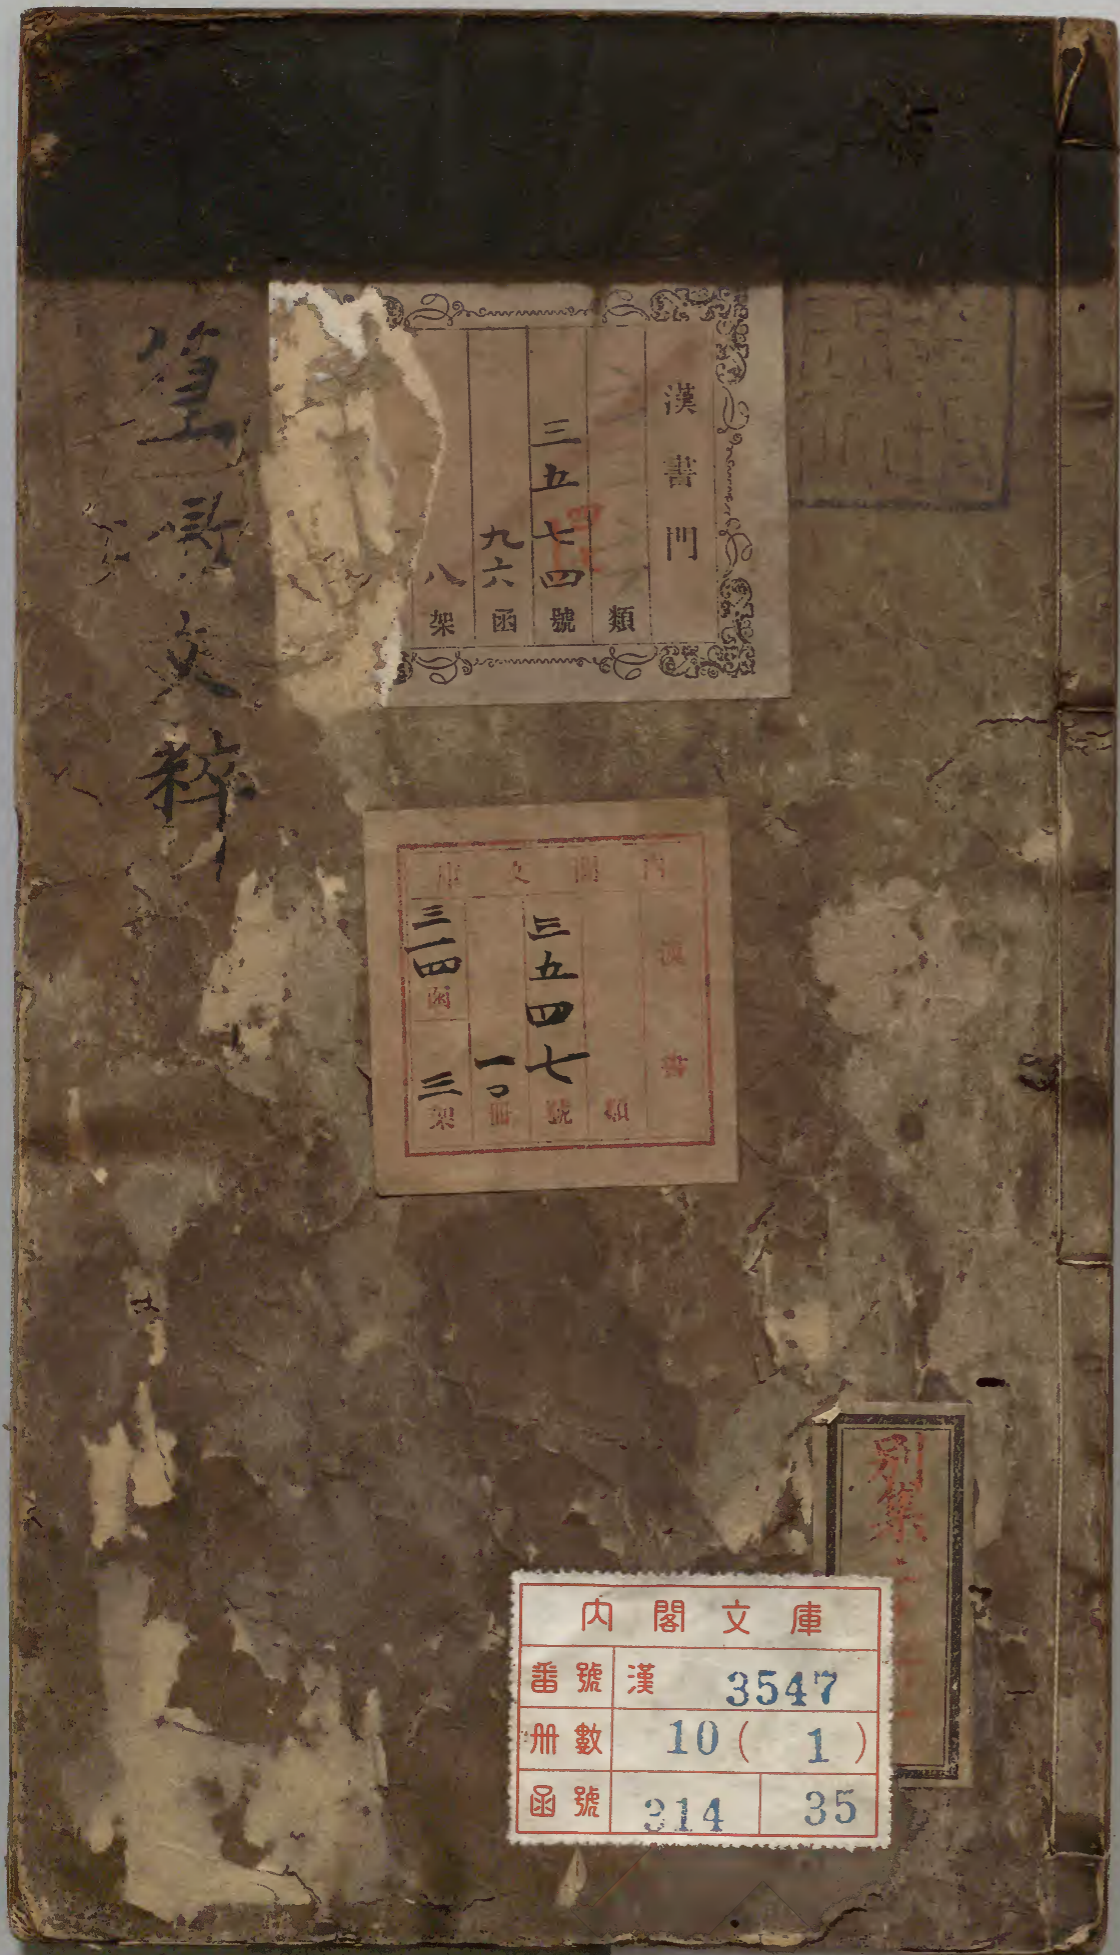 篁墩文粹
漢書門
類
三五七四號
九六函
八架
内閣文庫
漢書
類
三五四七號
一〇冊
三一四函
三架
別集
内閣文庫
番號 漢 3547
册數 10(1)
函號 314 35